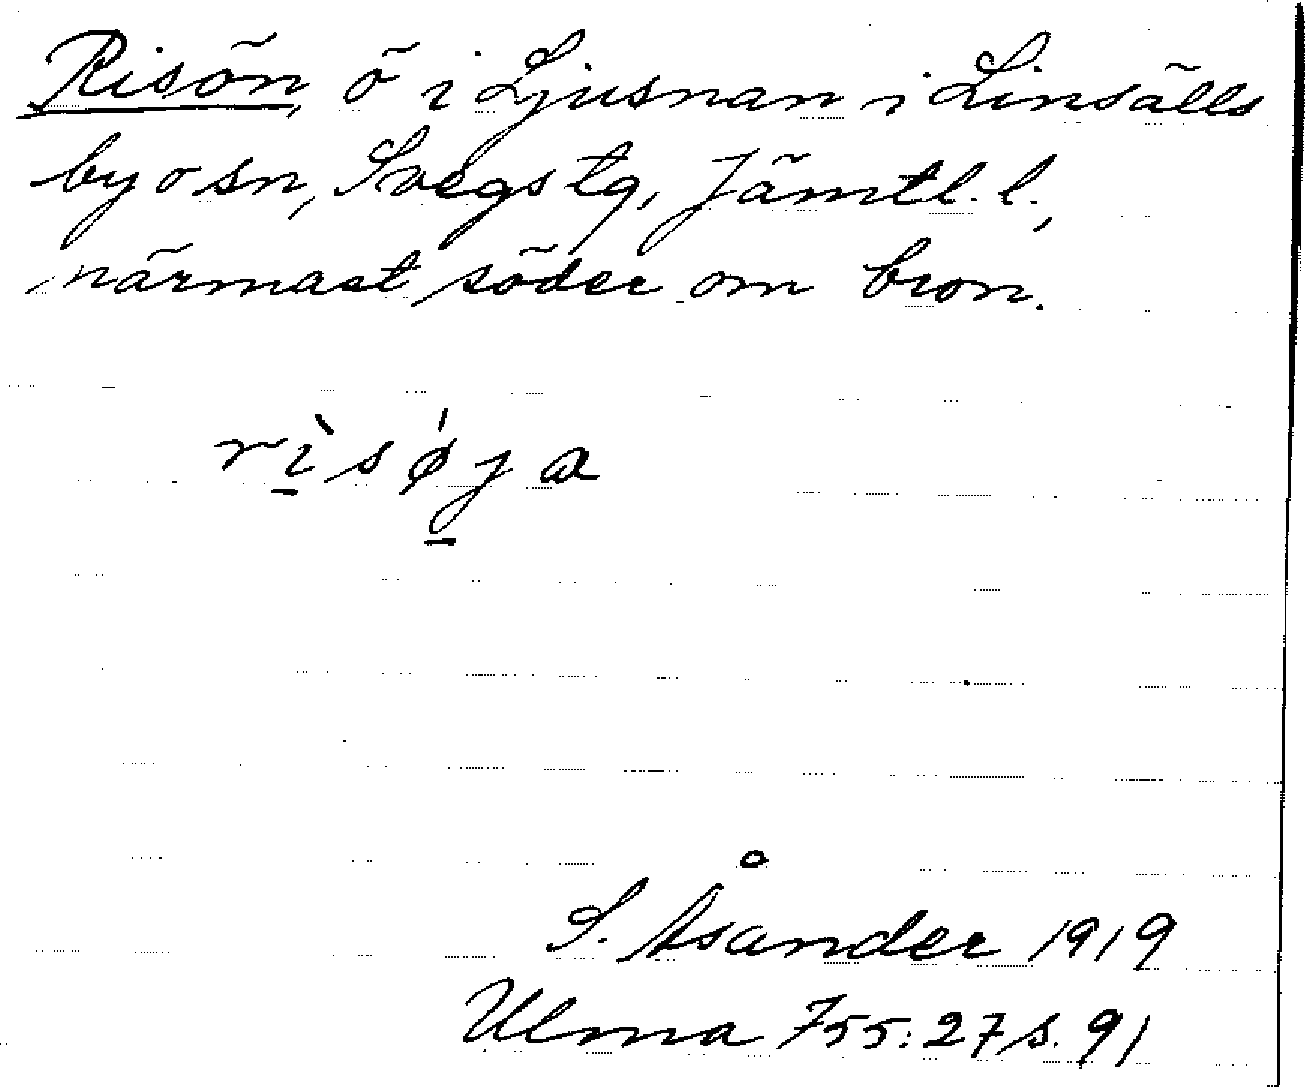 Risön, ö i Ljusnan i Linsälls
by o sn, Svegs tg, Jämtl. l.,
närmast söder om bron.
rı̠̀søj̠a
S. Åsander 1919
Ulma 755:27 s. 91